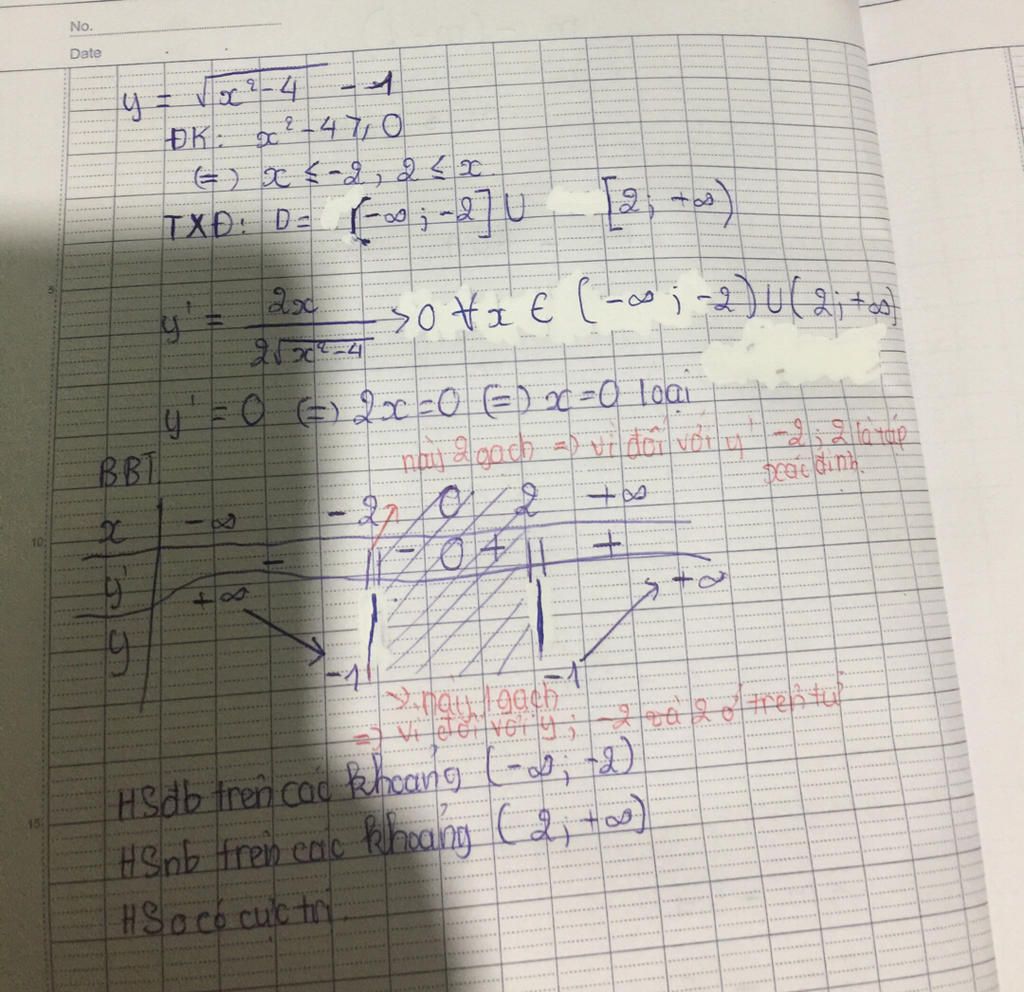 No.
Date
y = √(x²-4) - 1
ĐK: x² - 4 ⩾ 0
(=) x ≤ -2, 2 ≤ x
TXĐ: D = [-∞; -2] ∪ [2; +∞)
5
y' = 2x / 2√(x²-4) > 0 ∀x ∈ (-∞; -2) ∪ (2; +∞)
y' = 0 (=) 2x = 0 (=) x = 0 loại
này 2 gạch => vì đối với y' -2; 2 là tập
xác định.
BBT
x -∞ -2 0 2 +∞
10
y' - || - 0 + || +
y +∞ -1 -1 +∞
này 1 gạch
=> vì đối với y; -2 và 2 ở trên tử
HSđb trên các khoảng (-∞; -2)
15
HSnb trên các khoảng (2; +∞)
HS o có cực trị.